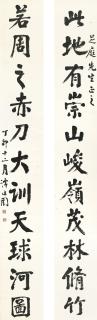 庭先生正之
此地有崇山峻嶺茂林脩竹
若周之赤刀大訓天球河圖
丁卯十二月譚延闓